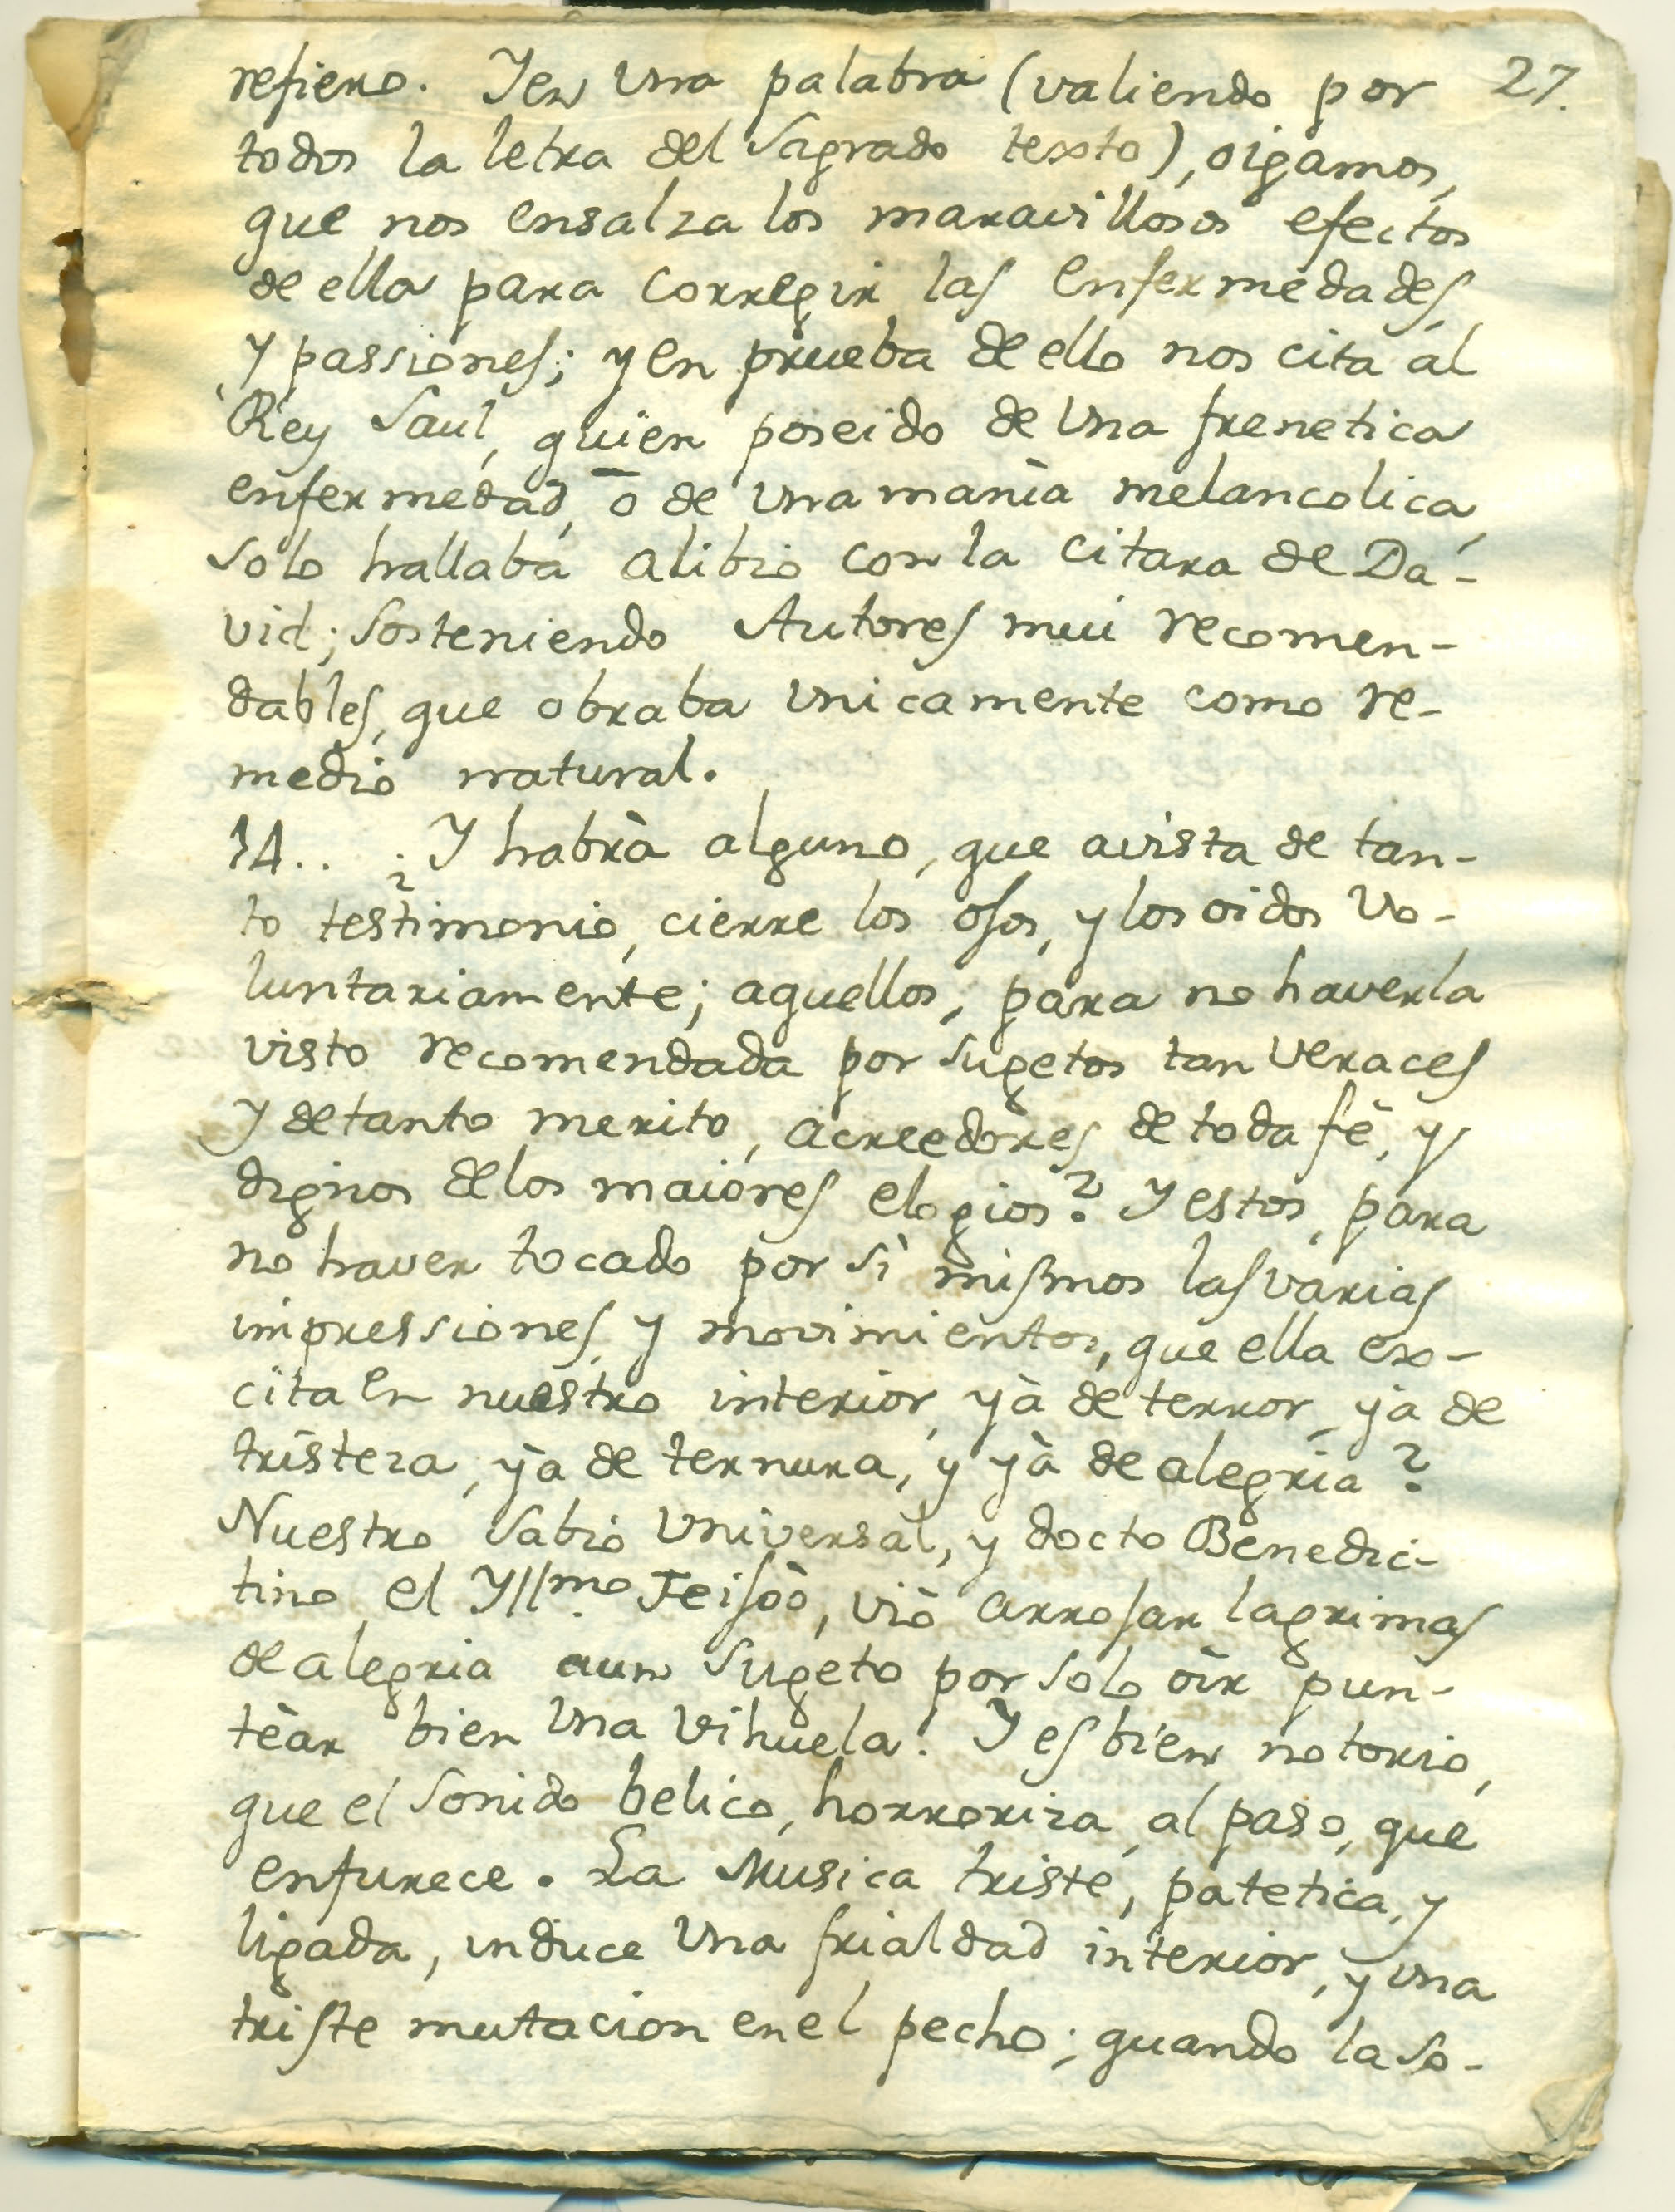 refiero. Y en una palabra (valiendo por 27.
todos la letra del Sagrado texto), oigamos,
que nos ensalza los maravillosos efectos
de ella para corregir las enfermedades,
y passiones; y en prueba de ello nos cita al
Rey Saul, quien poseido de una frenetica
enfermedad, ò de una manìa melancolica,
solo hallaba alibio con la citara de Da-
vid; sosteniendo Autores mui recomen-
dables, que obraba unicamente como re-
medio natural.
14.. ¿Y habrà alguno, que avista de tan-
to testimonio, cierre los ojos, y los oidos vo-
luntariamente; aquellos, para no haverla
visto recomendada por sugetos tan veraces
y de tanto merito, acreedores de toda fè, y
dignos de los maiores elogios? Y estos, para
no haver tocado por sì mismos las varias
impressiones, y movimientos, que ella ex-
cita en nuestro interior, yà de terror, yà de
tristeza, yà de ternura, y yà de alegria?
Nuestro Sabio universal, y docto Benedic-
tino el Yllmo. Feijoò, viò arrojar lagrimas
de alegria aun sugeto por solo oìr pun-
tèar bien una vihuela! Y es bien notorio,
que el sonido belico, horroriza, al paso, que
enfurece. La Musica triste, patetica, y
ligada, induce una frialdad interior, y una
triste mutacion en el pecho; quando la so-